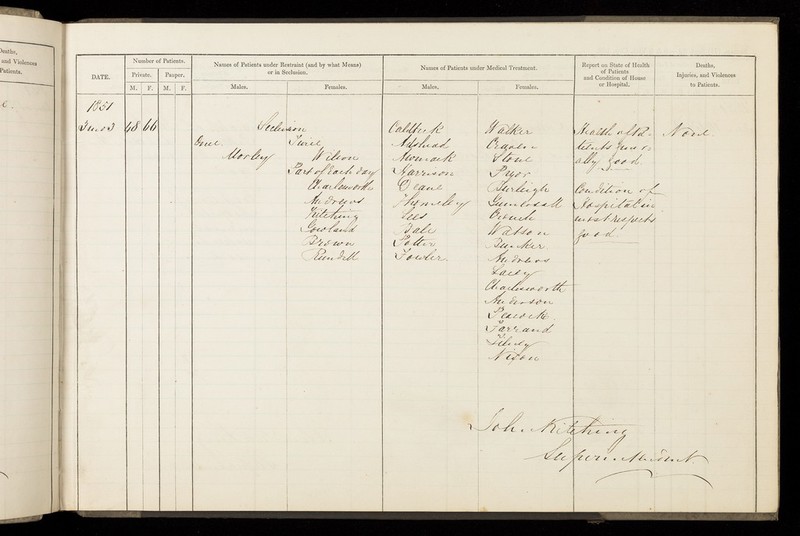 Deaths,
and Violences
Patients.
DATE.
Number of Patients.
Private. Pauper.
M. F. M. F.
Names of Patients under Restraint (and by what Means)
or in Seclusion.
Males. Females.
Names of Patients under Medical Treatment.
Males. Females.
Report on State of Health
of Patients
and Condition of House
or Hospital.
Deaths,
Injuries, and Violences
to Patients.
1851
48 66
Seclusion
Once Twice
Morley Wilson
Part of Each day
Charlesworth
Andrews
Kitching
Gowland
Brown
Rundell
Caldbeck
Womack
Harrison
Deane
Lees
Dale
Potter
Fowler
Walker
Stone
Pryor
Burleigh
Crouch
Watson
Bunker
Andrews
Charlesworth
Anderson
Peacock
Farrand
Sibery
Nixon
Health of Pa-
tients gener-
ally good
Condition of
Hospital in
most respects
good
None
John Kitching
Superintendent